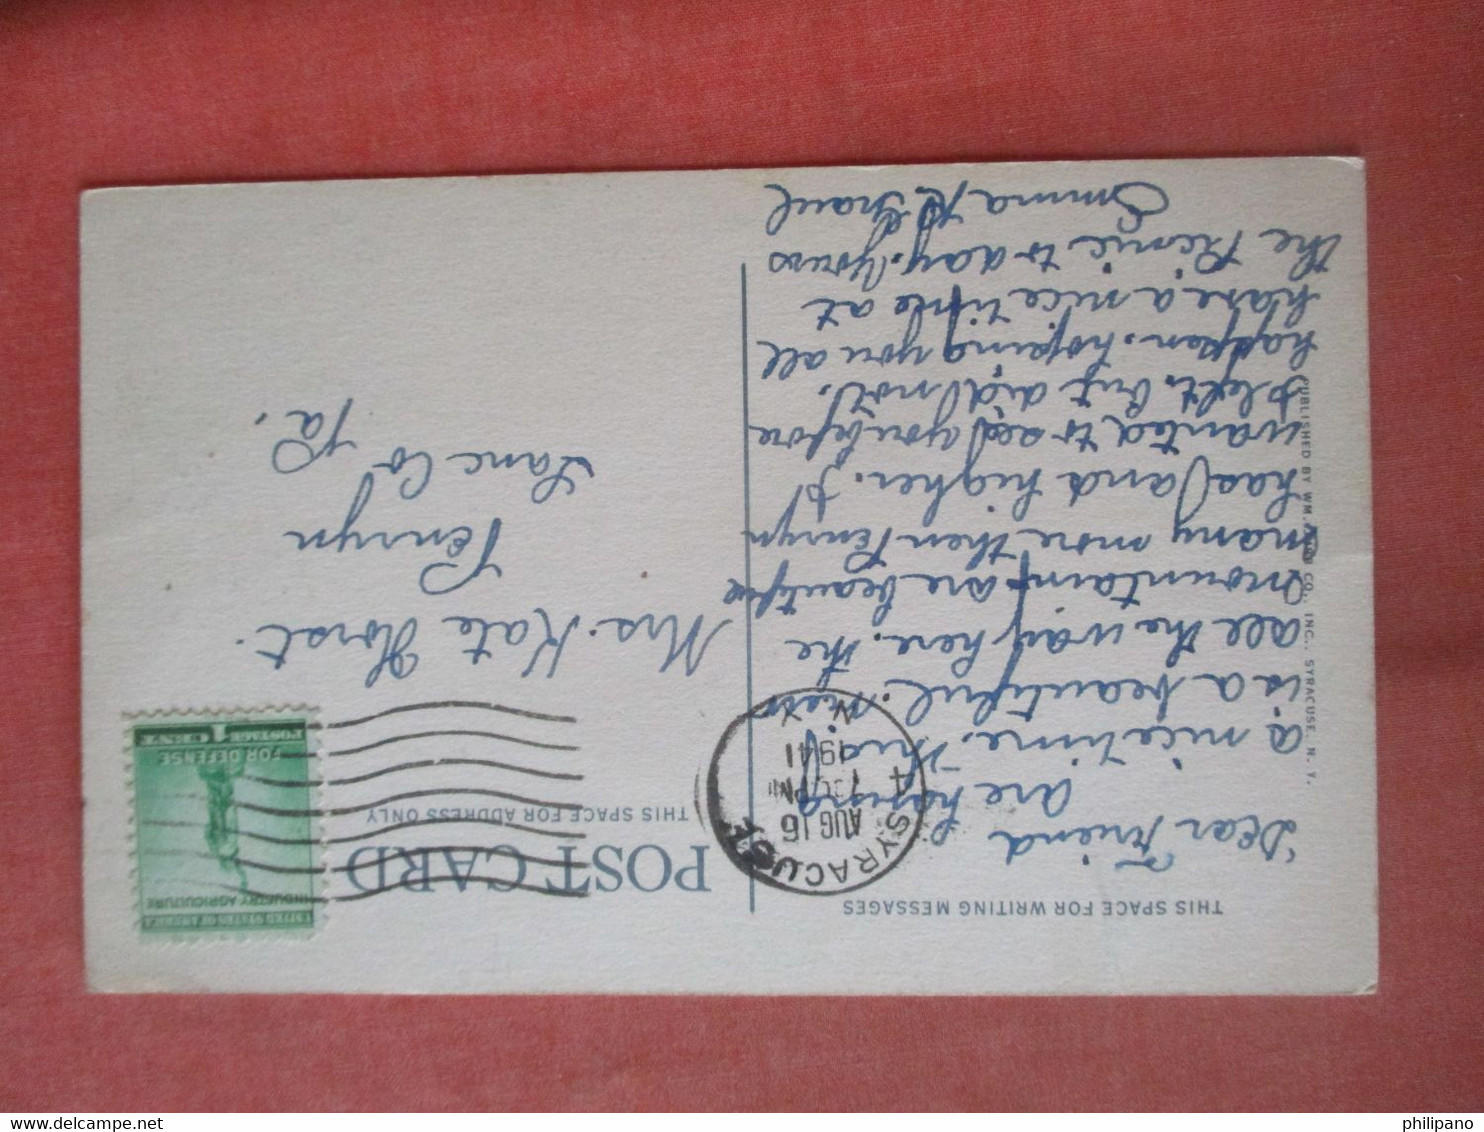 THIS SPACE FOR WRITING MESSAGES
Dear Friend
are having
a nice time. this
is a beautiful. view
all the way here. the
mountain are beautiful
many more then Penryn
has and higher. I
wanted to see you before
I left. but did not.
happen. hopeing you all
have a nice time at
the Picnic to day. Yours
Emma R Graul
PUBLISHED BY WM. CO., INC., SYRACUSE, N. Y.
SYRACUSE
AUG 16
7 30 PM
4
1941
N Y
POST CARD
THIS SPACE FOR ADDRESS ONLY
UNITED STATES OF AMERICA
INDUSTRY AGRICULTURE
FOR DEFENSE
POSTAGE 1 CENT
Mrs. Kate Horst.
Penryn
Lanc Co
Pa.
delcampe.net
philipano